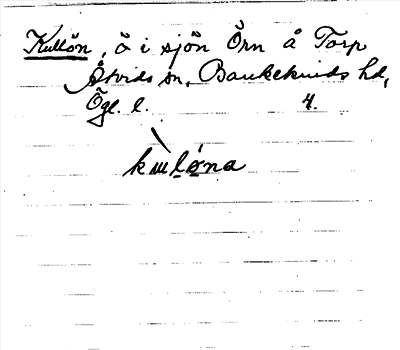 Kullön, ö i sjön Örn å Torp
Åtvids sn, Bankekinds hd,
Ögl. l. 4.
kɯlóna